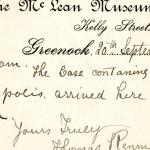 he McLean Museum
Kelly Street
Greenock, 20th Septe
am. The Case containing
polis, arrived here
Yours Truly
Thomas Renni